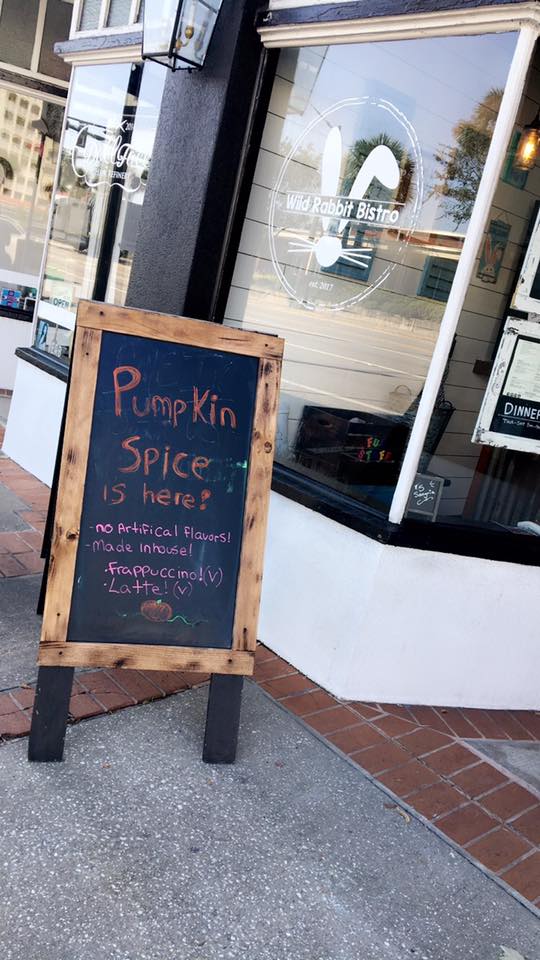 Wild Rabbit Bistro
est. 2017
OPEN
Pumpkin
Spice
is here!
-no Artifical flavors!
-Made inhouse!
·frappuccino!(v)
·Latte!(v)
FU
STUFF
DINNER
$5
Sangria